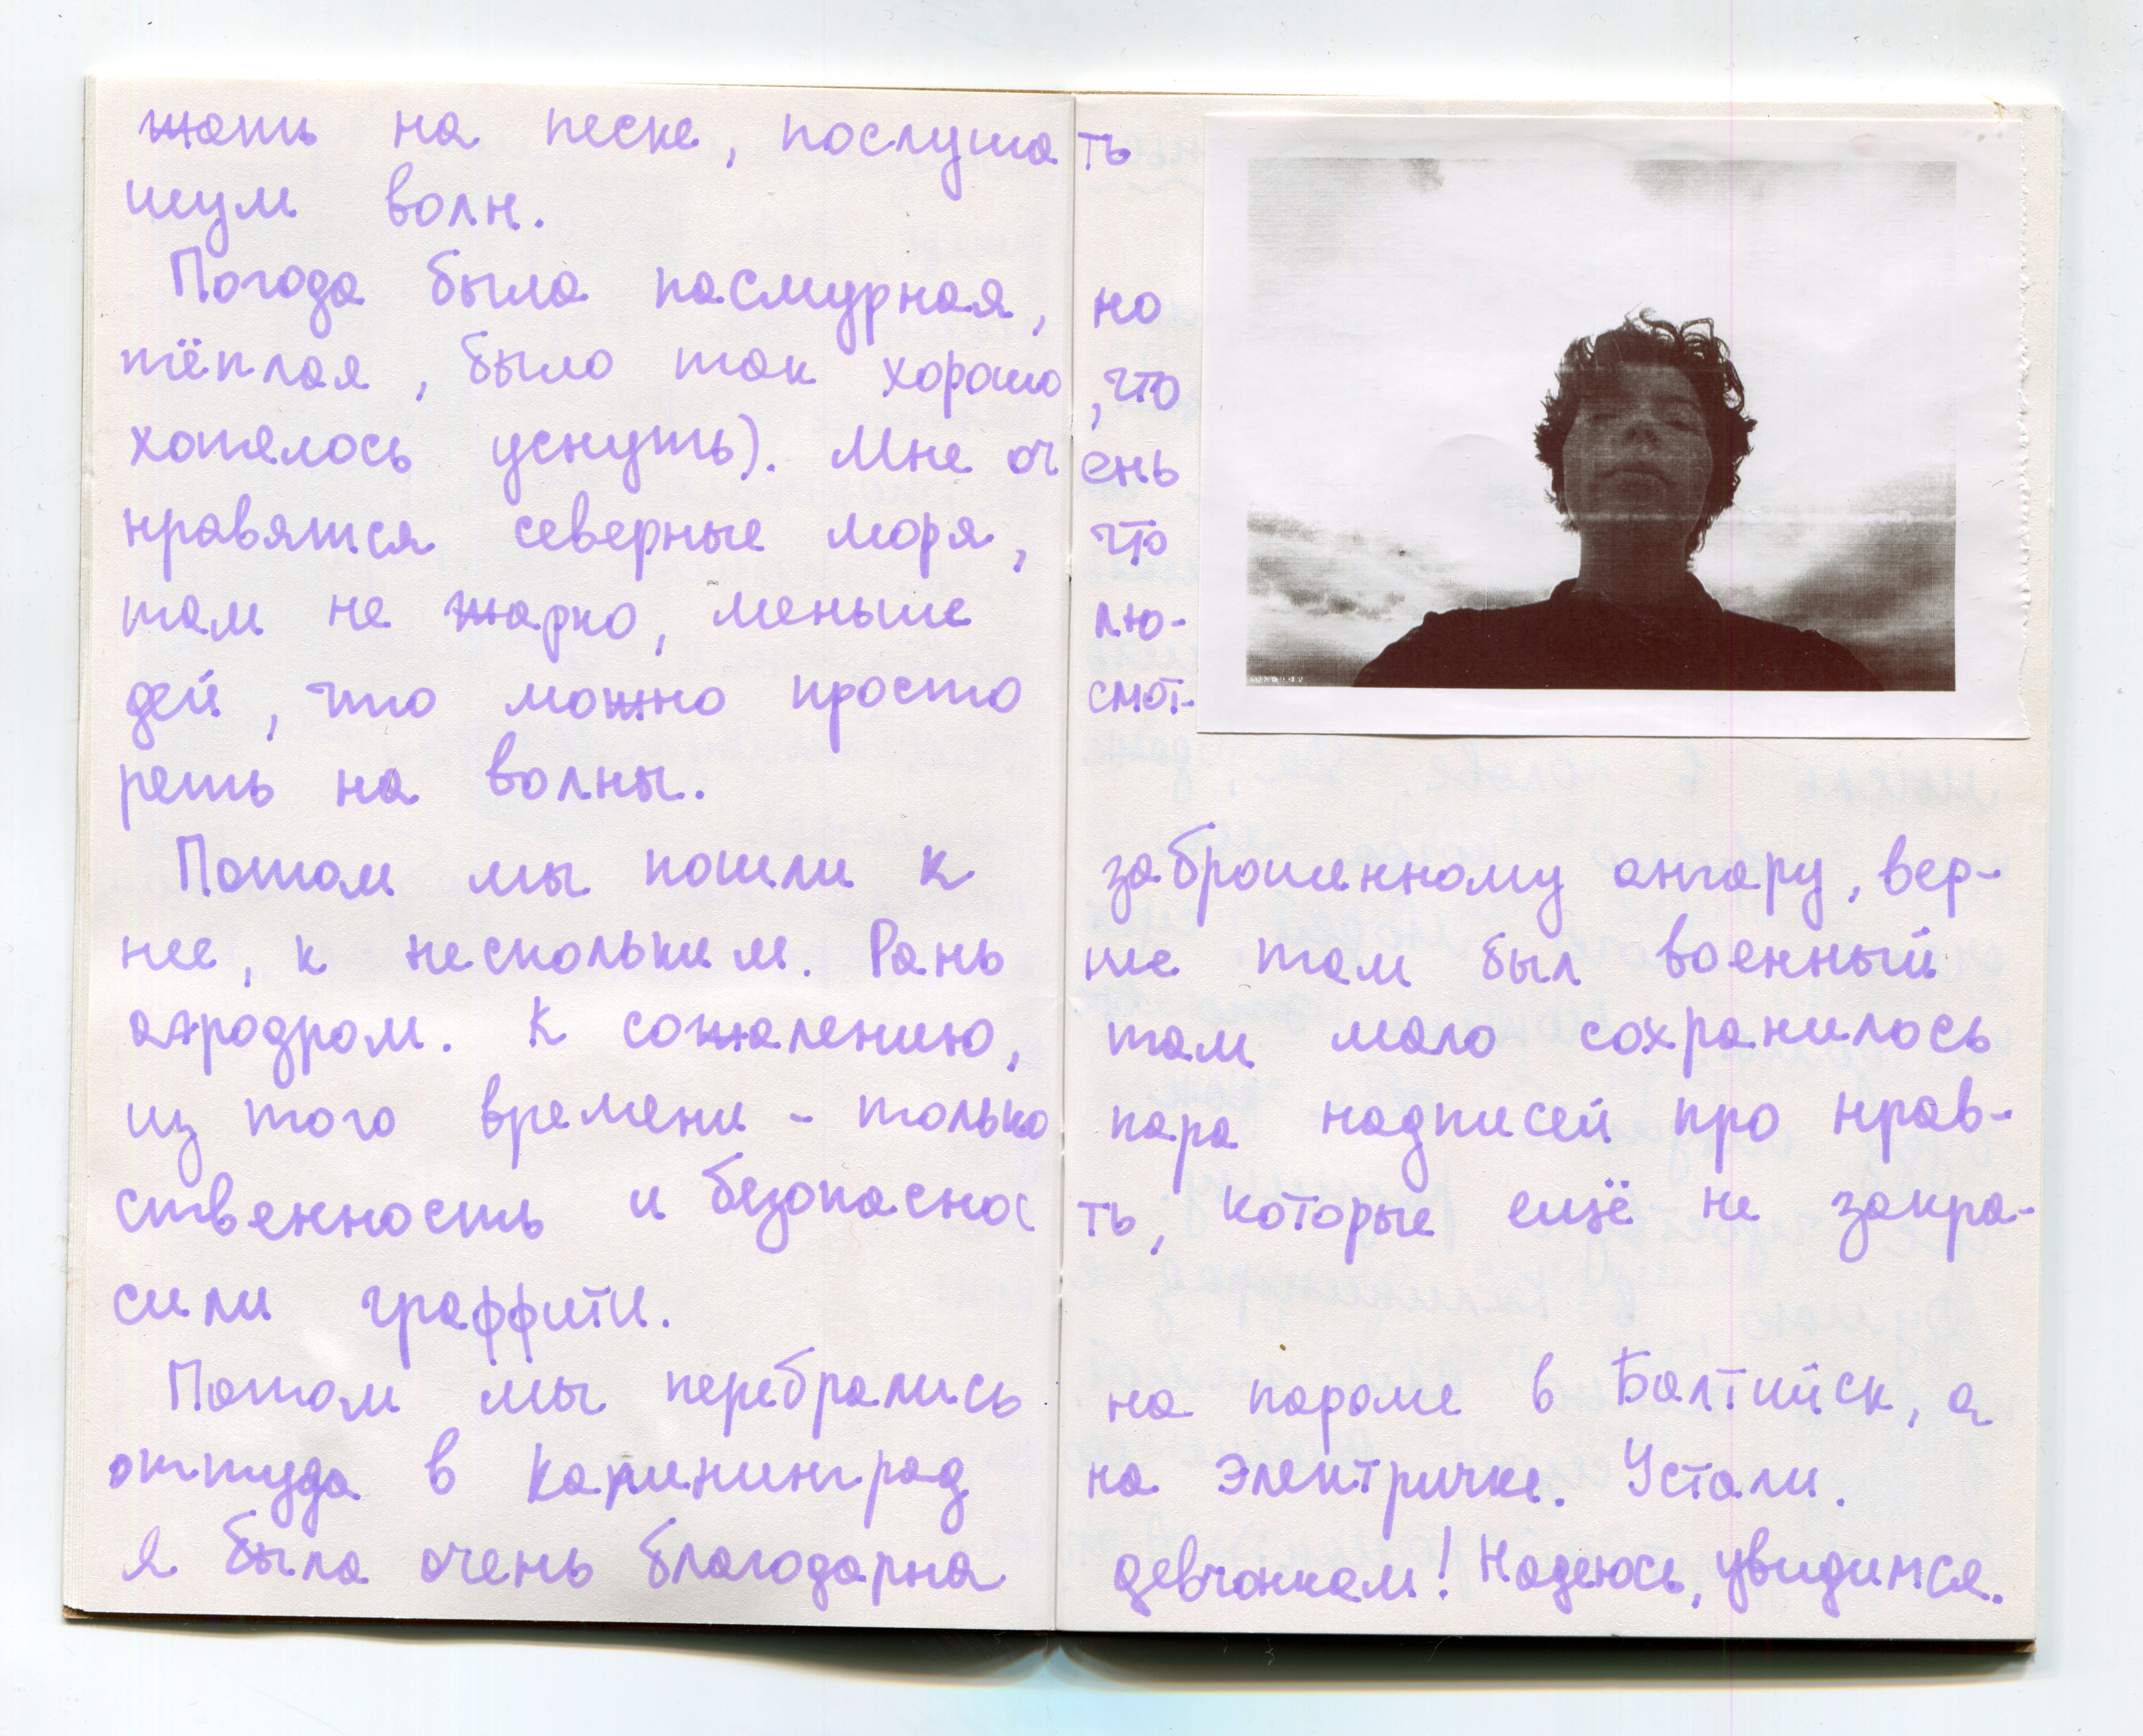 жать на песке, послушать
шум волн.
Погода была пасмурная, но
тёплая, было так хорошо, что
хотелось уснуть). Мне очень
нравятся северные моря, что
там не жарко, меньше лю-
дей, что можно просто смот-
реть на волны.
Потом мы пошли к заброшенному ангару, вер-
нее, к нескольким. Раньше там был военный
аэродром. К сожалению, там мало сохранилось
из того времени - только пара надписей про нрав-
ственность и безопасность, которые ещё не закра-
сили граффити.
Потом мы перебрались на пароме в Балтийск, а
оттуда в Калининград на электричке. Устали.
Я была очень благодарна девчонкам! Надеюсь, увидимся.